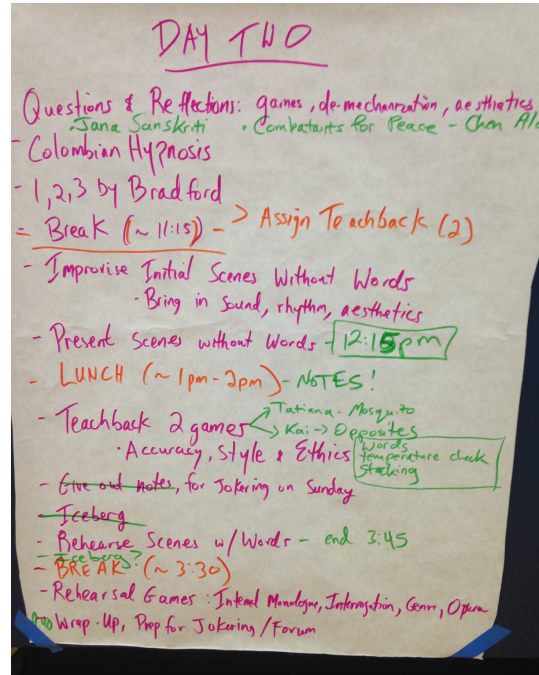 DAY TWO
Questions & Reflections: games, de-mechanization, aesthetics
• Jana Sanskriti • Combatants for Peace - Chen Alo
- Colombian Hypnosis
- 1, 2, 3 by Bradford
- Break (~ 11:15) - > Assign Teachback (2)
- Improvise Initial Scenes Without Words
• Bring in sound, rhythm, aesthetics
- Present Scenes without Words - 12:15pm
- LUNCH (~ 1pm - 2pm) - NOTES!
- Teachback 2 games > Tatiana - Mosquito
> Kai -> Opposites
• Accuracy, Style & Ethics
Words
temperature check
Stacking
- Give out notes, for Jokering on Sunday
- Iceberg
- Rehearse Scenes w/ Words - end 3:45
- Iceberg?
- BREAK (~ 3:30)
- Rehearsal Games: Internal Monologue, Interrogation, Genre, Opera
Wrap-Up, Prep for Jokering / Forum